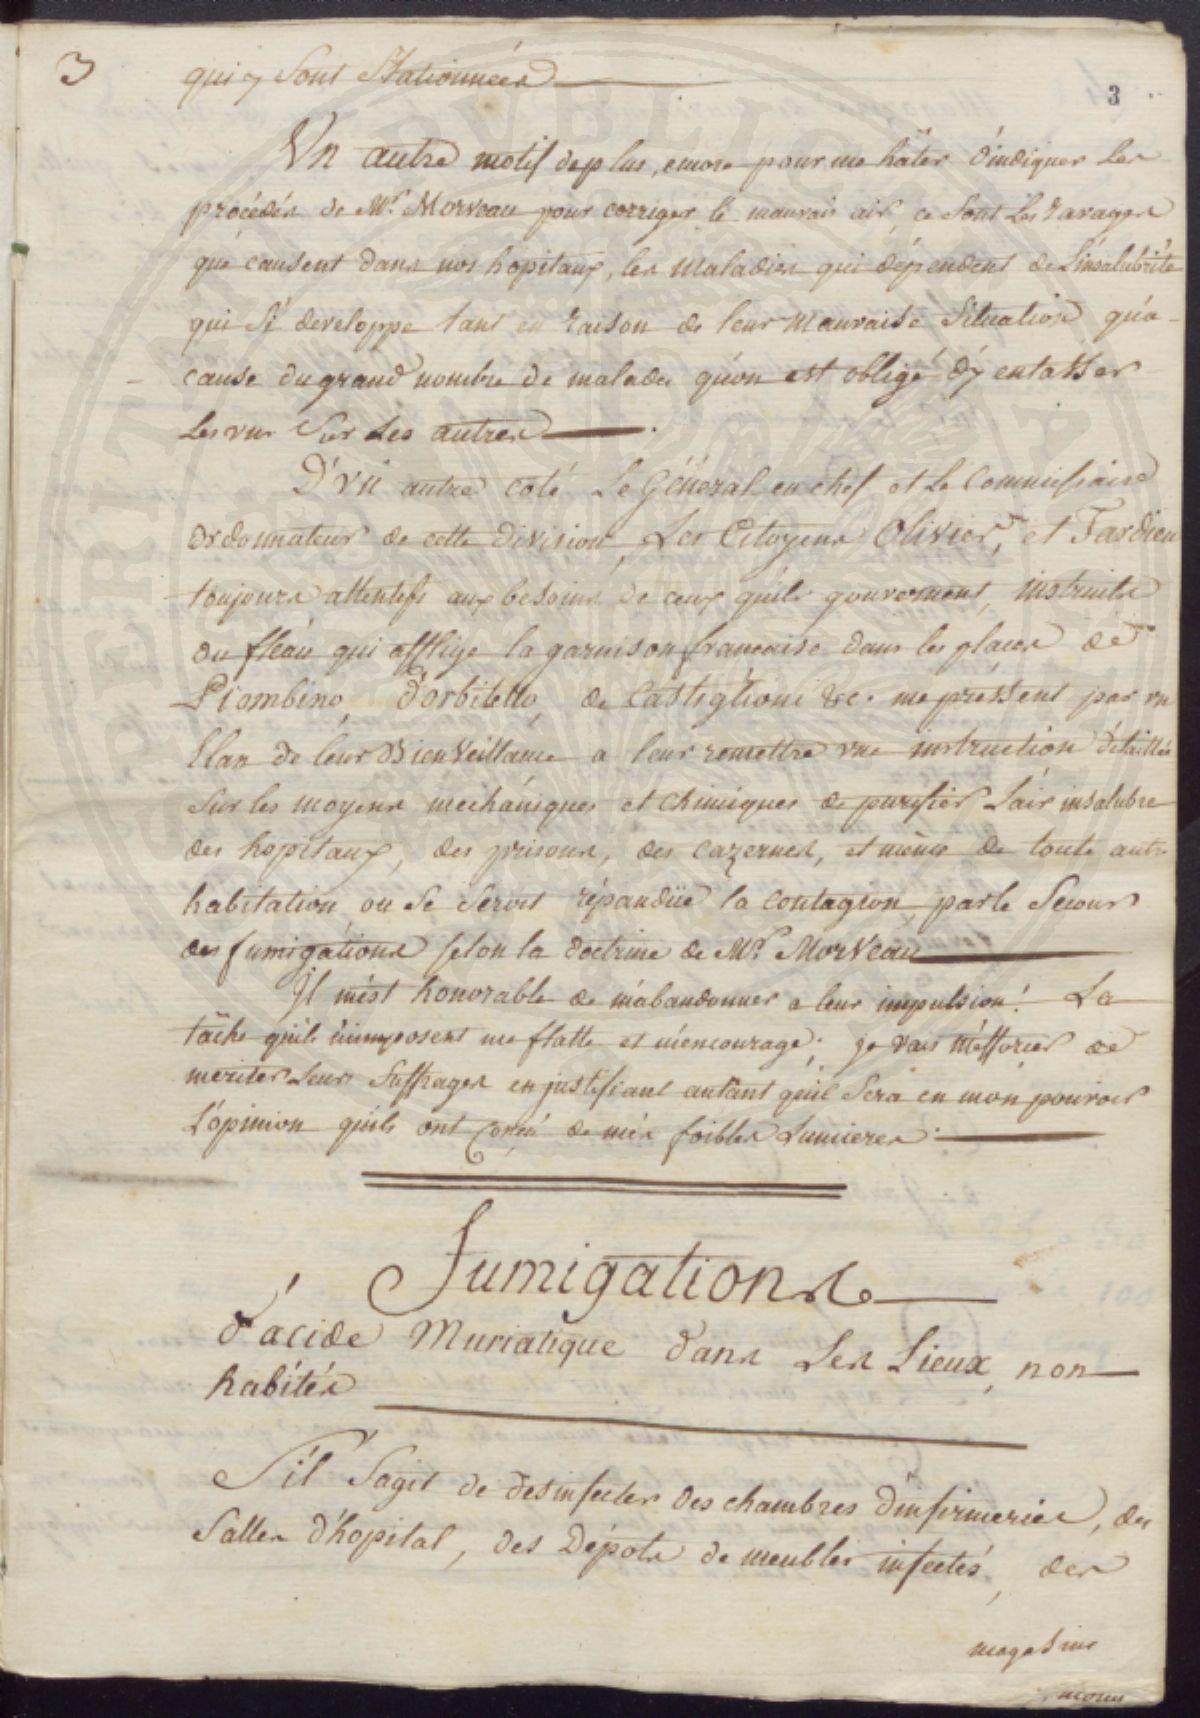 3
3
qui y Sont Stationnées
Un autre motif de plus, encore pour me hâter d'indiquer les
procédés de Mr. Morveau pour corriger le mauvais air, ce sont les ravages
que causent dans nos hopitaux, les maladies qui dépendent de L'insalubrité
qui S'i developpe tant en raison de leur mauvaise Situation qu'a
cause du grand nombre de malades qu'on est obligé d'y entasser
Les uns Sur Les autres
D'un autre coté Le Général en chef et Le Commissaire
Ordonnateur de cette Division, Les Citoyens Olivier, et Tardieu
toujours attentifs aux besoins de ceux qu'ils gouvernent, instruits
du fléau qui afflige la garnison francaise dans les places de
Piombino, d'orbitello, de Castiglioni &c. me préssent par un
Elan de leur Bienveillance a leur remettre une instruction détaillée
Sur les moyens mechániques et chimiques de purifier L'air insalubre
des hopitaux, des prisons, des cazernes, et mêmes de toute autre
habitation ou Se Seroit répanduë la contagion, par le Secours
des fumigations selon la doctrine de Mr. Morveau
Il m'est honorable de m'abandonner a leur impulsion! La
tâche qu'ils m'imposent me flatte et m'encourage; je vais m'efforcer de
meriter Leurs Suffrages en justifiant autant qu'il Sera en mon pouvoir
L'opinion qu'ils ont de mes foibles Lumieres.
Fumigations
d'acide Muriatique dans Les Lieux non
habités
S'il S'agit de desinfecter des chambres d'infirmeries, des
Salles d'hopital, des Dépots de meubles infectés, des
magasins